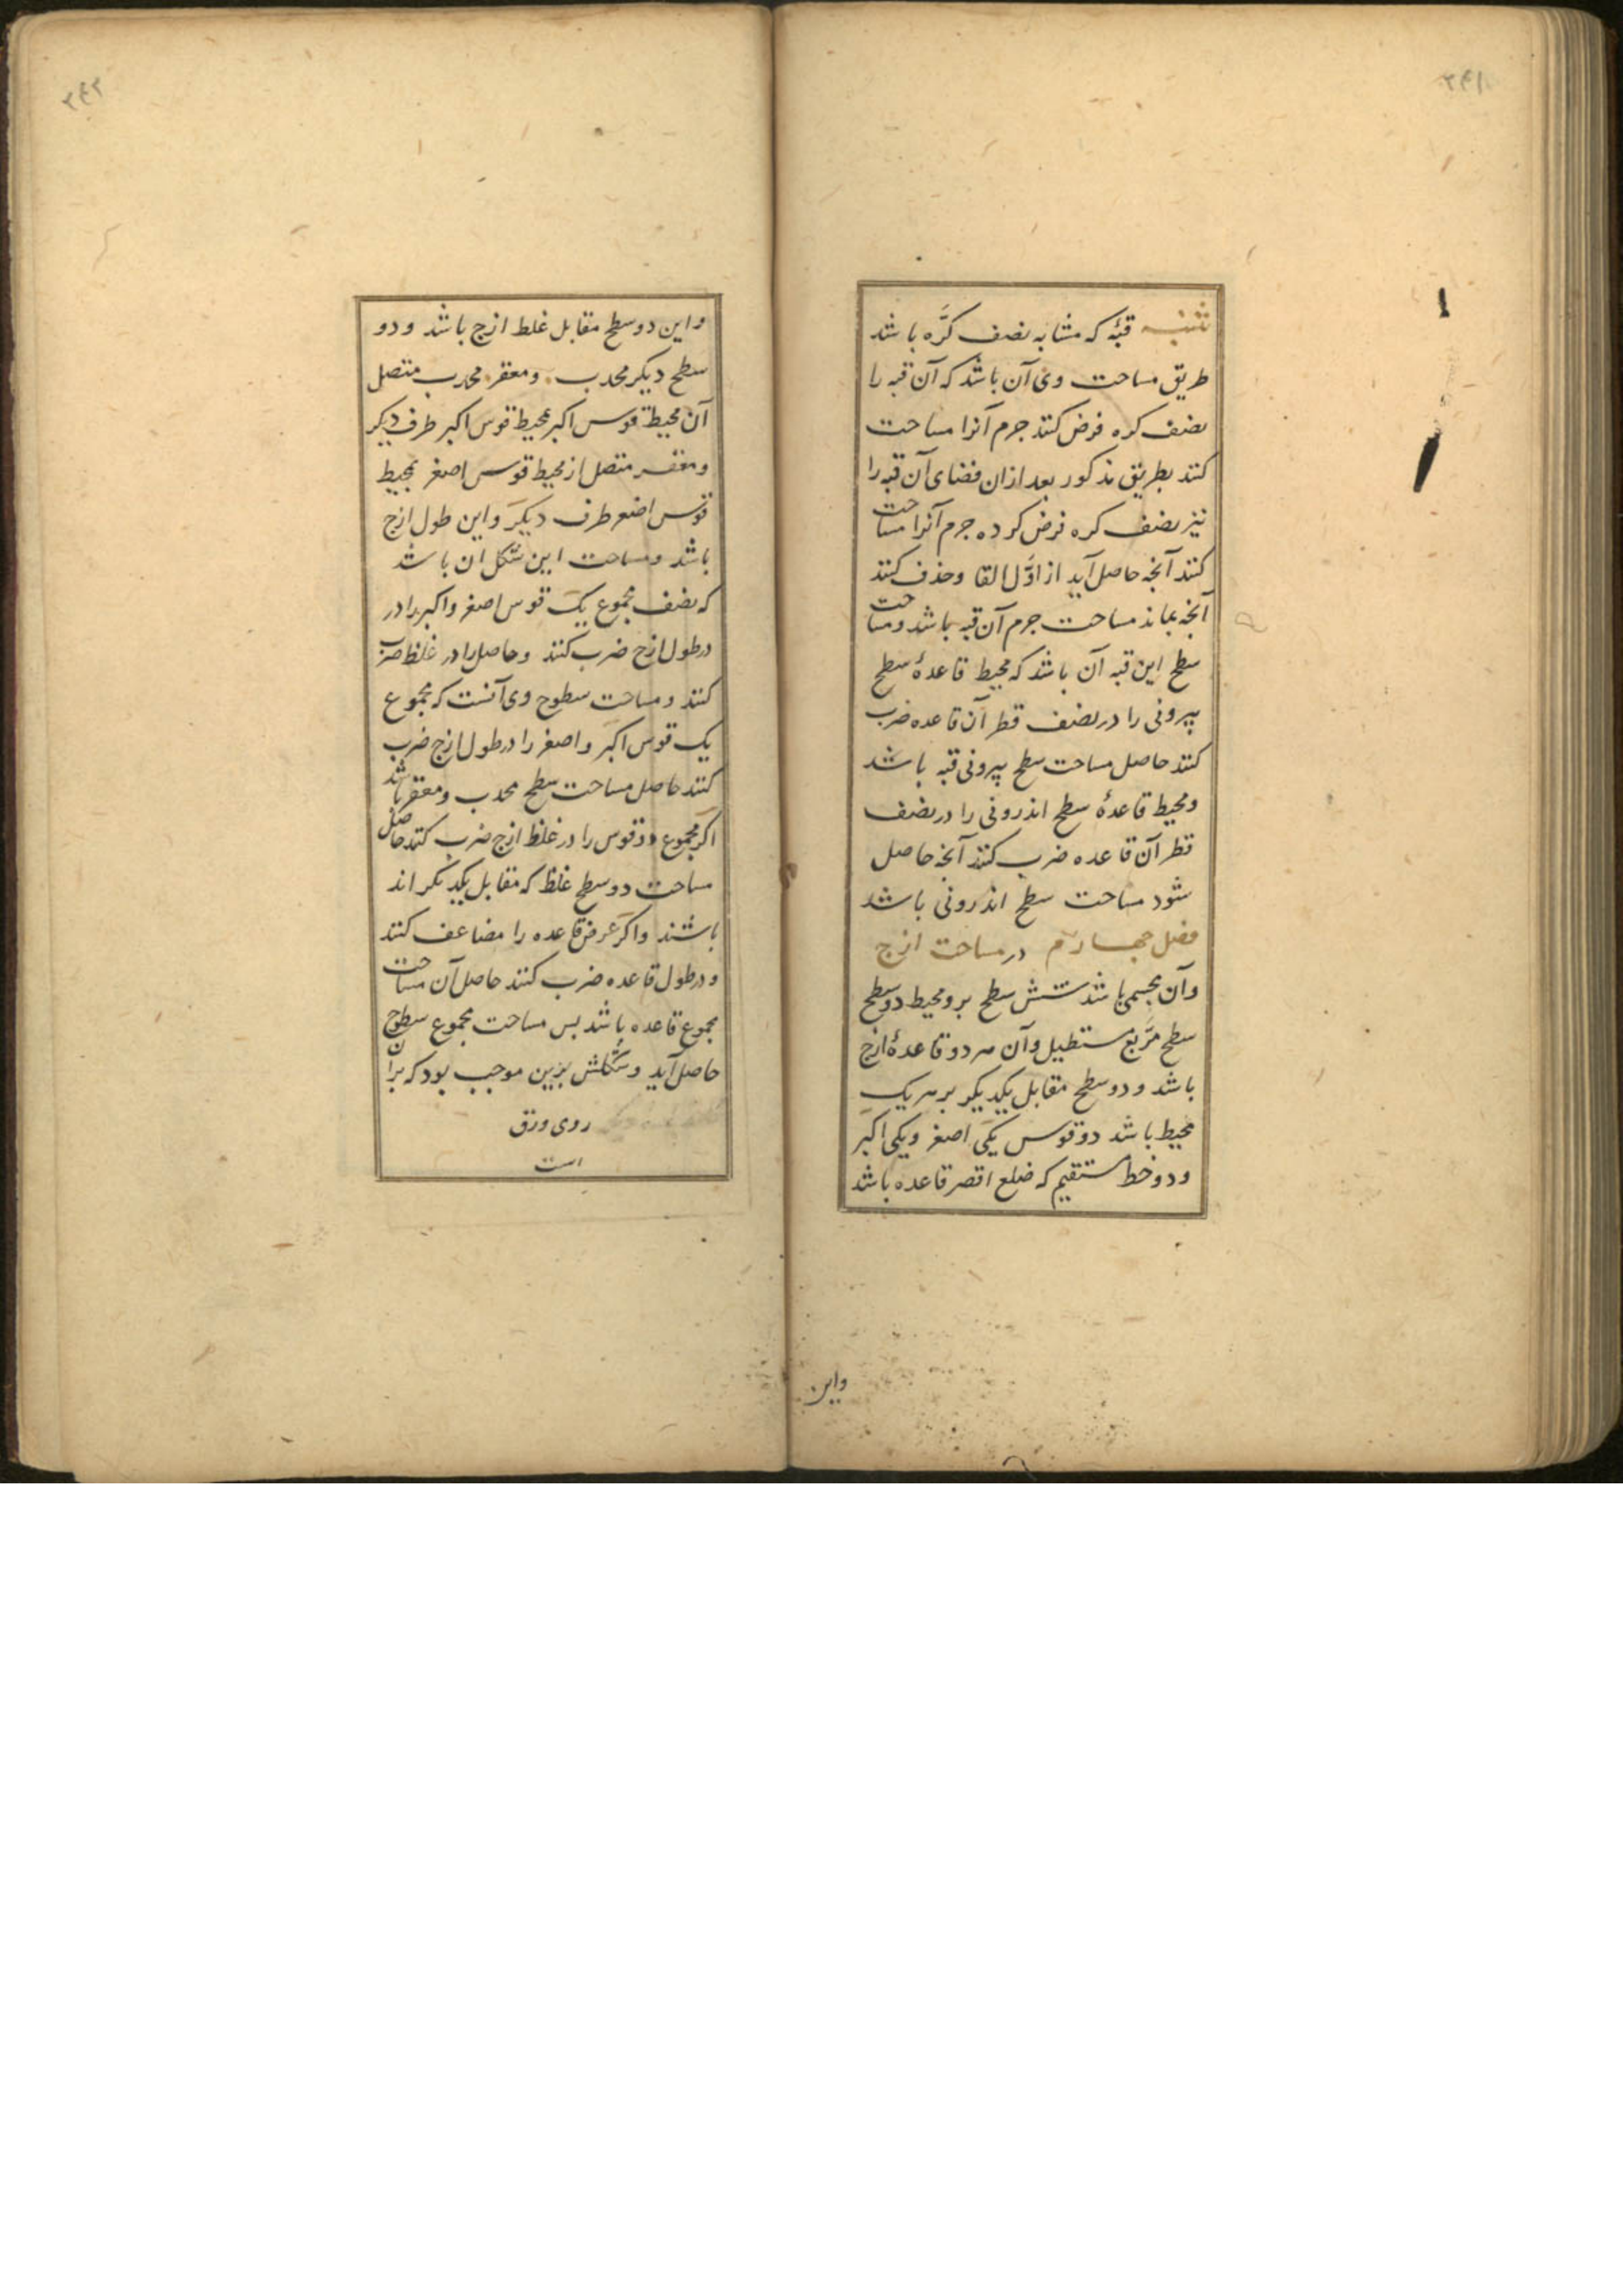 ۲۹۱
تنبیه قبّه که مشابه نصف کرّه باشد
طریق مساحت وی آن باشد که آن قبه را
نصف کره فرض کنند جرم آنرا مساحت
کنند بطریق مذکور بعد ازان فضای آن قبه را
نیز نصف کره فرض کرده جرم آنرا مساحت
کنند آنچه حاصل آید از اوّل القا و حذف کنند
آنچه بماند مساحت جرم آن قبه باشد و مساحت
سطح این قبه آن باشد که محیط قاعدۀ سطح
بیرونی را در نصف قطر آن قاعده ضرب
کنند حاصل مساحت سطح بیرونی قبه باشد
و محیط قاعدۀ سطح اندرونی را در نصف
قطر آن قاعده ضرب کنند آنچه حاصل
شود مساحت سطح اندرونی باشد
فصل چهارم در مساحت ازج
وآن مجسمی باشد شش سطح برو محیط دو سطح
سطح مربّع مستطیل وآن هر دو قاعدۀ ازج
باشد و دو سطح مقابل یکدیکر بر هر یک
محیط باشد دو قوس یکی اصغر و یکی اکبر
و دو خط مستقیم که ضلع اقصر قاعده باشد
واین
۲۹۲
واین دو سطح مقابل غلط ازج باشد و دو
سطح دیکر محدب و مقعر محدب متصل
آن محیط قوس اکبر بمحیط قوس اکبر طرف دیکر
و مقعر متصل از محیط قوس اصغر بمحیط
قوس اصغر طرف دیکر واین طول ازج
باشد و مساحت این شکل ان باشد
که نصف مجموع یک قوس اصغر و اکبر را در
در طول ازج ضرب کنند و حاصل را در غلظ ضرب
کنند و مساحت سطوح وی آنست که مجموع
یک قوس اکبر و اصغر را در طول ازج ضرب
کنند حاصل مساحت سطح محدب و مقعر باشد
اکر مجموع دو قوس را در غلظ ازج ضرب کنند حاصل
مساحت دو سطح غلظ که مقابل یکدیکر اند
باشند و اکر عرض قاعده را مضاعف کنند
و در طول قاعده ضرب کنند حاصل آن مساحت
مجموع قاعده باشد بس مساحت مجموع سطوح
حاصل آید و شکلش بزین موجب بود که بران
روی ورق
است